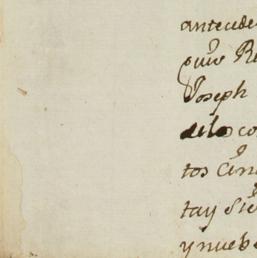 antecede
Joseph
delo co
tos Cin
tay Sie
y nueb